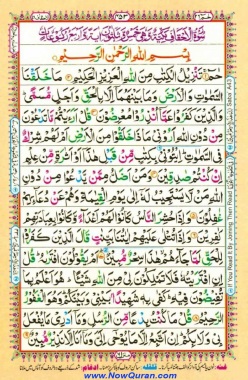 بِسْمِ اللهِ الرَّحْمٰنِ الرَّحِيْمِ
حٰمٓ تَنْزِيْلُ الْكِتٰبِ مِنَ اللهِ الْعَزِيْزِ الْحَكِيْمِ مَا خَلَقْنَا
السَّمٰوٰتِ وَالْاَرْضَ وَمَا بَيْنَهُمَاۤ اِلَّا بِالْحَقِّ وَاَجَلٍ مُّسَمًّى
وَالَّذِيْنَ كَفَرُوْا عَمَّاۤ اُنْذِرُوْا مُعْرِضُوْنَ قُلْ اَرَءَيْتُمْ مَّا تَدْعُوْنَ
مِنْ دُوْنِ اللهِ اَرُوْنِيْ مَاذَا خَلَقُوْا مِنَ الْاَرْضِ اَمْ لَهُمْ شِرْكٌ
فِي السَّمٰوٰتِ اِيْتُوْنِيْ بِكِتٰبٍ مِّنْ قَبْلِ هٰذَاۤ اَوْ اَثٰرَةٍ مِّنْ عِلْمٍ
اِنْ كُنْتُمْ صٰدِقِيْنَ وَمَنْ اَضَلُّ مِمَّنْ يَّدْعُوْا مِنْ دُوْنِ اللهِ
مَنْ لَّا يَسْتَجِيْبُ لَهٗۤ اِلٰى يَوْمِ الْقِيٰمَةِ وَهُمْ عَنْ دُعَآئِهِمْ
غٰفِلُوْنَ وَاِذَا حُشِرَ النَّاسُ كَانُوْا لَهُمْ اَعْدَآءً وَّكَانُوْا بِعِبَادَتِهِمْ
كٰفِرِيْنَ وَاِذَا تُتْلٰى عَلَيْهِمْ اٰيٰتُنَا بَيِّنٰتٍ قَالَ الَّذِيْنَ كَفَرُوْا
لِلْحَقِّ لَمَّا جَآءَهُمْ هٰذَا سِحْرٌ مُّبِيْنٌ اَمْ يَقُوْلُوْنَ افْتَرٰىهُ قُلْ
اِنِ افْتَرَيْتُهٗ فَلَا تَمْلِكُوْنَ لِيْ مِنَ اللهِ شَيْئًا هُوَ اَعْلَمُ بِمَا
تُفِيْضُوْنَ فِيْهِ كَفٰى بِهٖ شَهِيْدًاۢ بَيْنِيْ وَبَيْنَكُمْ وَهُوَ الْغَفُوْرُ
الرَّحِيْمُ قُلْ مَا كُنْتُ بِدْعًا مِّنَ الرُّسُلِ وَمَاۤ اَدْرِيْ مَا يُفْعَلُ
بِيْ وَلَا بِكُمْ اِنْ اَتَّبِعُ اِلَّا مَا يُوْحٰۤى اِلَيَّ وَمَاۤ اَنَا اِلَّا نَذِيْرٌ مُّبِيْنٌ
www.NowQuran.com